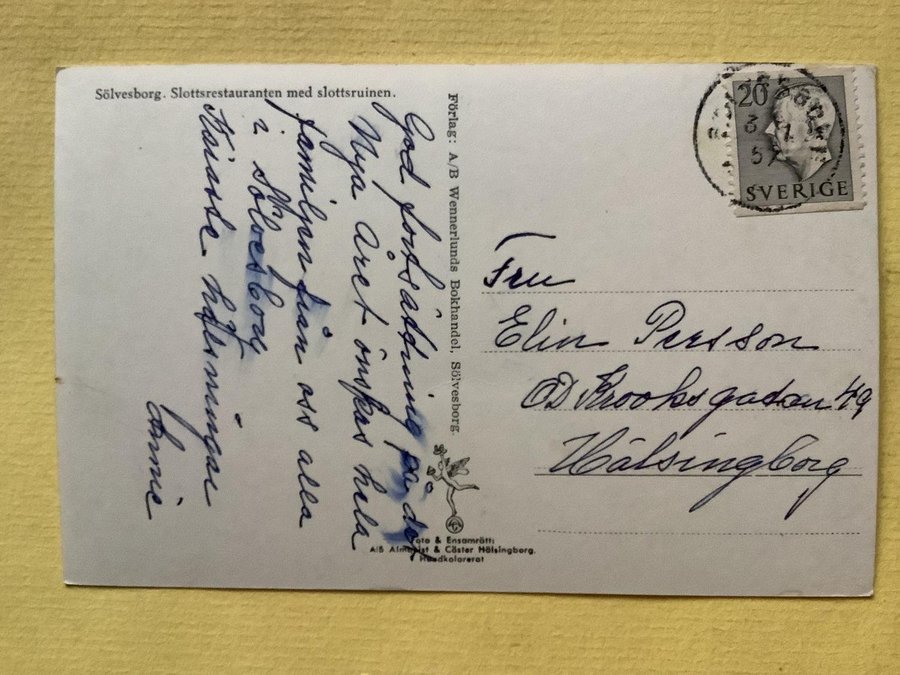 Sölvesborg. Slottsrestauranten med slottsruinen.
God fortsättning på det
Nya Året önskas hela
familjen från oss alla
i Sölvesborg
Kärasta hälsningar
Annie
Förlag: A/B Wennerlunds Bokhandel, Sölvesborg.
Foto & Ensamrätt:
A/B Almquist & Cöster Hälsingborg.
Handkolorerat
20
SVERIGE
3 1
57
Fru
Elin Persson
OD Krooksgatan 49
Hälsingborg